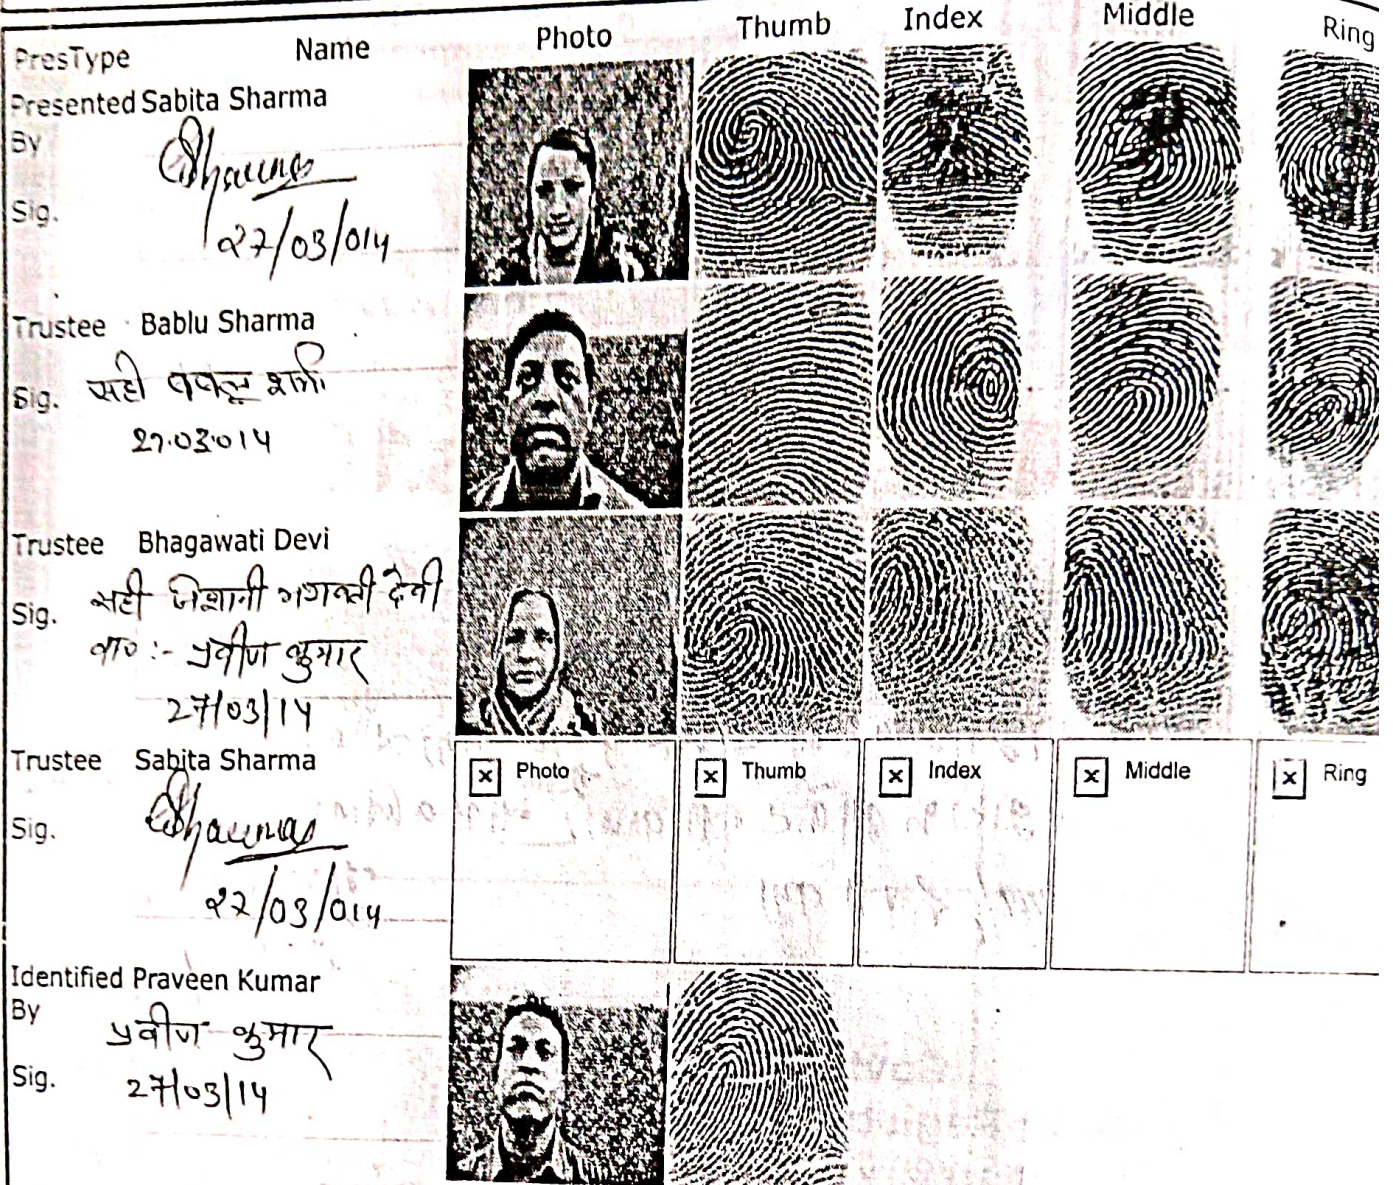 PresType Name Photo Thumb Index Middle Ring
Presented Sabita Sharma
By
Sig.
27/03/014
Trustee Bablu Sharma
Sig. सही बबलू शर्मा
27.03.014
Trustee Bhagawati Devi
Sig. सही निशानी भगवती देवी
बा० :- प्रवीण कुमार
27/03/14
Trustee Sabita Sharma
Photo Thumb Index Middle Ring
Sig.
27/03/014
Identified Praveen Kumar
By
प्रवीण कुमार
Sig.
27/03/14